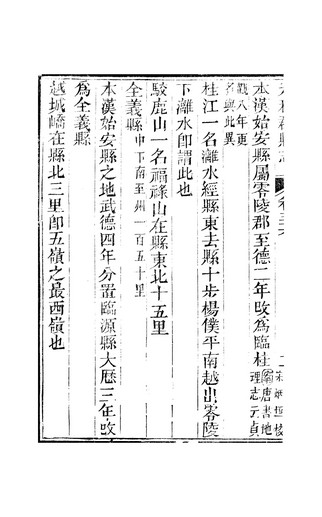 本漢始安縣屬零陵郡至德二年改爲臨桂 舊唐書地理志元貞
觀八年更名與此異
桂江一名灕水經縣東去縣十步楊僕平南越出零陵
下灕水卽謂此也
駮鹿山一名福祿山在縣東北十五里
全義縣 中下南至州一百五十里
本漢始安縣之地武德四年分置臨源縣大歷三年改
爲全義縣
越城嶠在縣北三里卽五嶺之最西嶺也